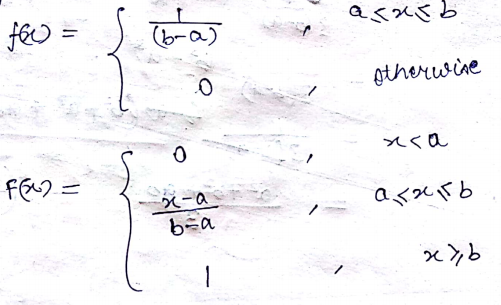 f(x) = { 1/(b-a) , a ≤ x ≤ b
0 , otherwise
F(x) = { 0 , x < a
x-a/b-a , a ≤ x ≤ b
1 , x ≥ b